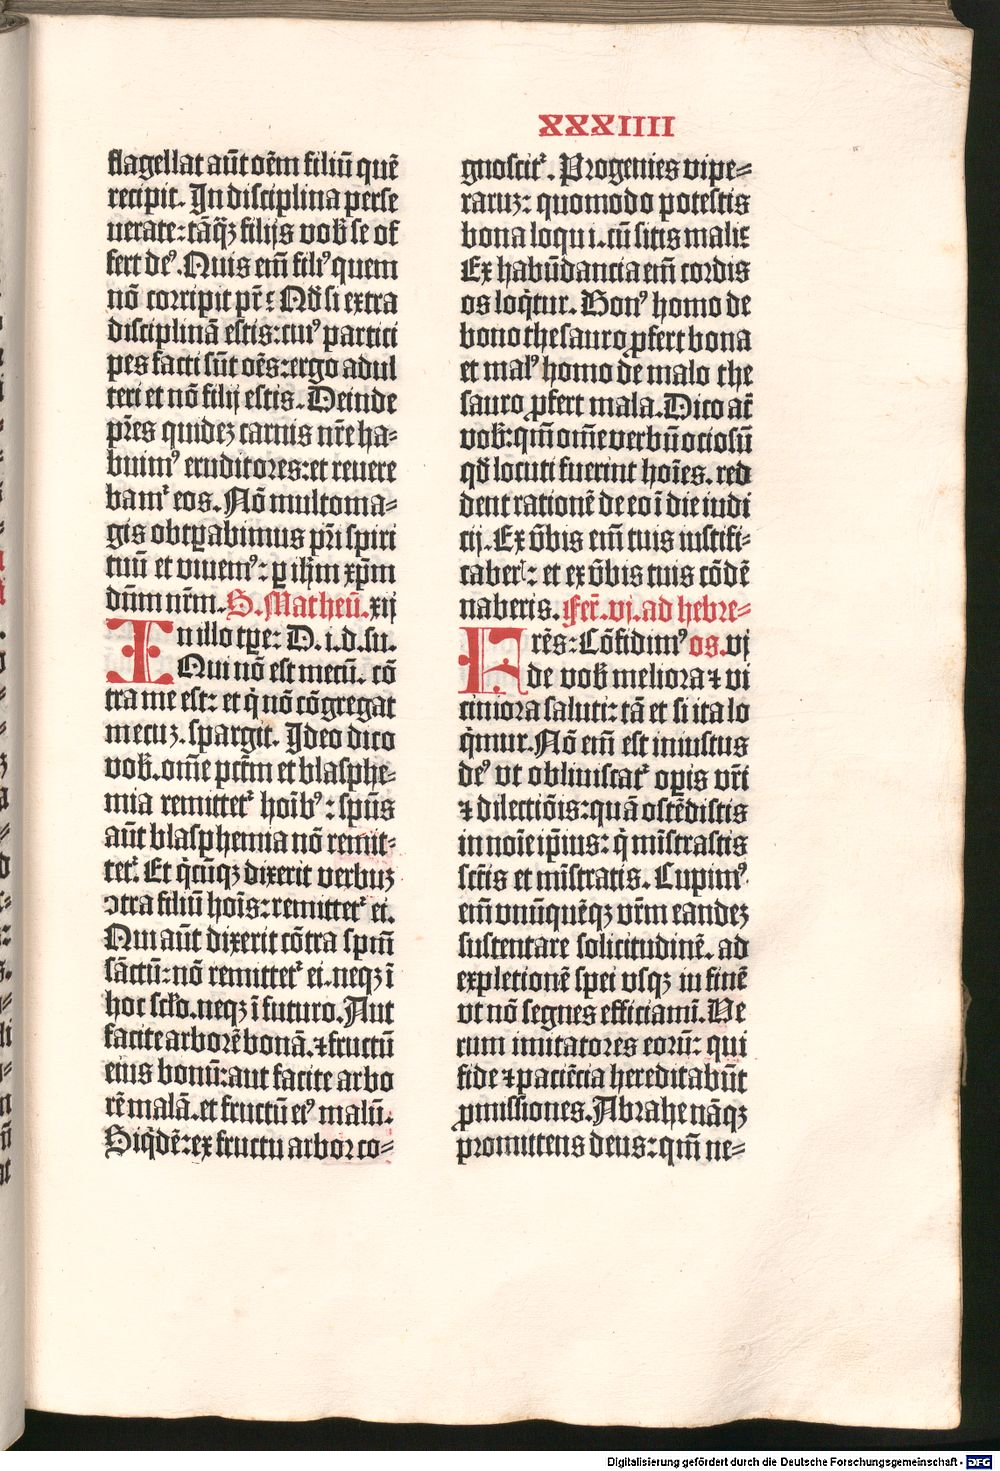 XXXIIII
flagellat aūt oēm filiū quē
recipit. In disciplina perse
uerate: tāq̄ꝫ filijs vob̄ se of
fert deꝰ. Quis em̄ filiꝰ quem
nō corripit pr̄: Qd̄ si extra
disciplinā estis: cuiꝰ partici
pes facti sūt oēs: ergo adul
teri et nō filij estis. Deinde
pr̄es quideꝫ carnis nr̄e ha⸗
buimꝰ eruditores: et reuere
bamᷣ eos. Nō multo ma⸗
gis obtꝑabimus pr̄i spiri
tuū et viuemꝰ: ꝑ ih̄m xp̄m
dn̄m nr̄m. S. Matheū. xij
In illo tꝑe: D. i. d. su.
Qui nō est mecū. cō
tra me est: et q̇ nō cōgregat
mecuꝫ. spargit. Ideo dico
vob̄. om̄e pctm̄ et blasphe⸗
mia remittetᷣ hoīb̄ꝰ: sp̄us
aūt blasphemia nō remit⸗
tetᷣ. Et q̇cūqꝫ dixerit verbuꝫ
ↄtra filiū hoīs: remittetᷣ ei.
Qui aūt dixerit cōtra spm̄
sāctū: nō remittetᷣ ei. neqꝫ ī
hoc scło. neqꝫ ī futuro. Aut
facite arborē bonā. ⁊ fructū
eius bonū: aut facite arbo
rē malā. et fructū eiꝰ malū.
Siq̇dē: ex fructu arbor co⸗
gnoscitᷣ. Progenies vipe⸗
raruꝫ: quomodo potestis
bona loqui. cū sitis mali:
Ex habūdancia em̄ cordis
os loq̇tur. Bonꝰ homo de
bono thesauro ꝓfert bona
et malꝰ homo de malo the
sauro ꝓfert mala. Dico at̄
vob̄: qm̄ om̄e verbū ociosū
qd̄ locuti fuerint hoīes. red
dent rationē de eo ī die iudi
cij. Ex v̄bis em̄ tuis iustifi⸗
caberᷣ: et ex v̄bis tuis cōdē
naberis. Fer̄. vj. ad hebre⸗
Fr̄es: Cōfidimꝰ os. vj
de vob̄ meliora ⁊ vi
ciniora saluti: tā et si ita lo
q̇mur. Nō em̄ est iniustus
deꝰ vt obliuiscatᷣ oꝑis vr̄i
⁊ dilectiōis: quā ostēdistis
in noīe ip̄ius: q̇ mīstrastis
sctīs et mīstratis. Cupimꝰ
em̄ vnūquēqꝫ vr̄m eandeꝫ
sustentare solicitudinē. ad
expletionē spei vsqꝫ in finē
vt nō segnes efficiamī. Ve
rum imitatores eorū: qui
fide ⁊ paciēcia hereditabūt
ꝓmissiones. Abrahe nāqꝫ
promittens deus: qm̄ ne⸗
Digitalisierung gefördert durch die Deutsche Forschungsgemeinschaft - DFG